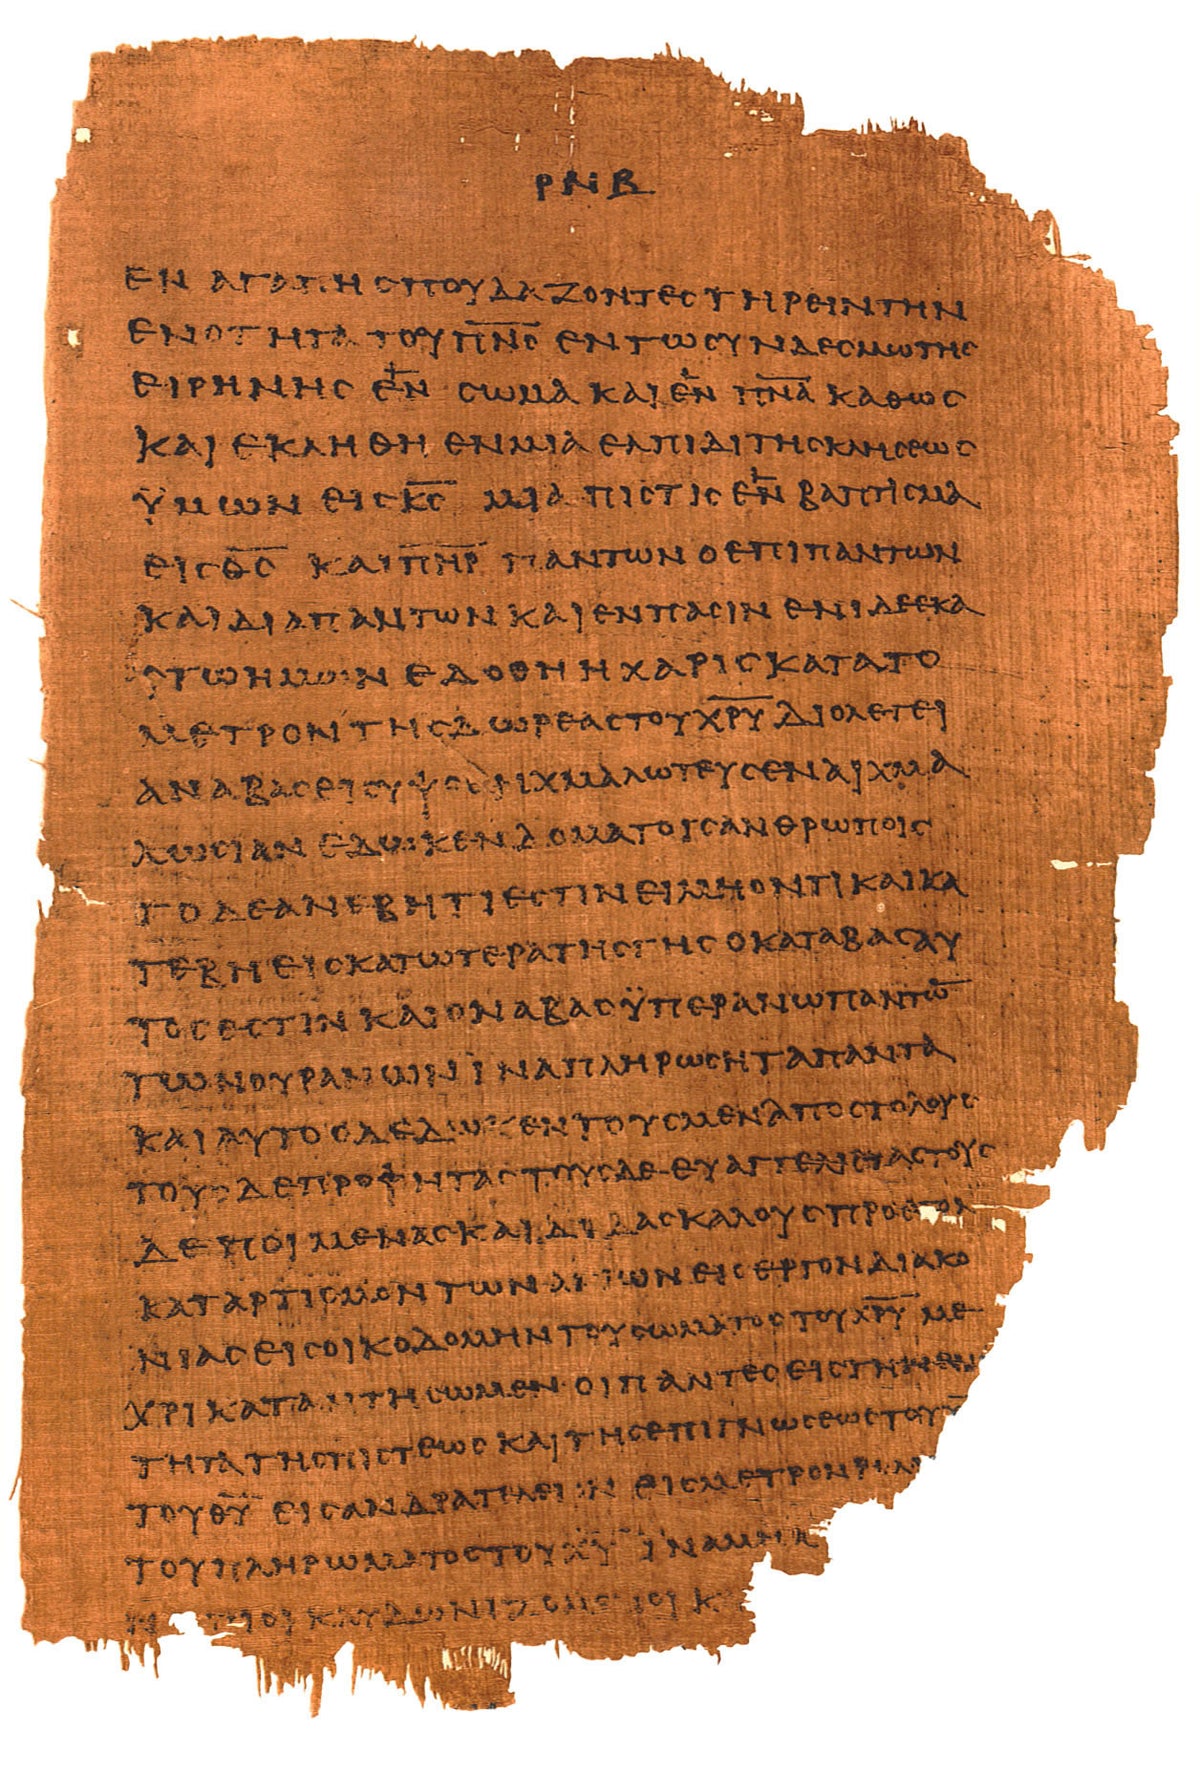 ΡΝΒ
ΕΝ ΑΓΑΠΗ ΣΠΟΥΔΑΖΟΝΤΕΣ ΤΗΡΕΙΝ ΤΗΝ
ΕΝΟΤΗΤΑ ΤΟΥ Π̅Ν̅Σ̅ ΕΝ ΤΩ ΣΥΝΔΕΣΜΩ ΤΗΣ
ΕΙΡΗΝΗΣ ΕΝ ΣΩΜΑ ΚΑΙ ΕΝ Π̅Ν̅Α̅ ΚΑΘΩΣ
ΚΑΙ ΕΚΛΗΘΗ ΕΝ ΜΙΑ ΕΛΠΙΔΙ ΤΗΣ ΚΛΗΣΕΩΣ
ΫΜΩΝ ΕΙΣ Κ̅Σ̅ ΜΙΑ ΠΙΣΤΙΣ ΕΝ ΒΑΠΤΙΣΜΑ
ΕΙΣ Θ̅Σ̅ ΚΑΙ Π̅Η̅Ρ̅ ΠΑΝΤΩΝ Ο ΕΠΙ ΠΑΝΤΩΝ
ΚΑΙ ΔΙΑ ΠΑΝΤΩΝ ΚΑΙ ΕΝ ΠΑΣΙΝ ΕΝΙ ΔΕ ΕΚΑ
ΣΤΩ ΗΜΩΝ ΕΔΟΘΗ Η ΧΑΡΙΣ ΚΑΤΑ ΤΟ
ΜΕΤΡΟΝ ΤΗΣ ΔΩΡΕΑΣ ΤΟΥ Χ̅Ρ̅Υ̅ ΔΙΟ ΛΕΓΕΙ
ΑΝΑΒΑΣ ΕΙΣ ΥΨΟΣ ΗΧΜΑΛΩΤΕΥΣΕΝ ΑΙΧΜΑ
ΛΩΣΙΑΝ ΕΔΩΚΕΝ ΔΟΜΑΤ ΤΟΙΣ ΑΝΘΡΩΠΟΙΣ
ΤΟ ΔΕ ΑΝΕΒΗ ΤΙ ΕΣΤΙΝ ΕΙ ΜΗ ΟΝΤΙ ΚΑΙ ΚΑ
ΤΕΒΗ ΕΙΣ ΚΑΤΩΤΕΡΑ ΤΗΣ ΓΗΣ Ο ΚΑΤΑΒΑΣ ΑΥ
ΤΟΣ ΕΣΤΙΝ ΚΑΙ Ο ΝΑΒΑΣ ΫΠΕΡΑΝΩ ΠΑΝΤΩ̅
ΤΩΝ ΟΥΡΑΝΩΝ ΙΝΑ ΠΛΗΡΩΣΗ ΤΑ ΠΑΝΤΑ
ΚΑΙ ΑΥΤΟΣ ΔΕΔΩΚΕΝ ΤΟΥΣ ΜΕΝ ΑΠΟΣΤΟΛΟΥΣ
ΤΟΥΣ ΔΕ ΠΡΟΦΗΤΑΣ ΤΟΥΣ ΔΕ ΕΥΑΓΓΕΛΙΣΤΑΣ ΤΟΥΣ
ΔΕ ΠΟΙΜΕΝΑΣ ΚΑΙ ΔΙΔΑΣΚΑΛΟΥΣ ΠΡΟΣ ΤΟΝ
ΚΑΤΑΡΤΙΣΜΟΝ ΤΩΝ ΑΓΙΩΝ ΕΙΣ ΕΡΓΟΝ ΔΙΑΚΟ
ΝΙΑΣ ΕΙΣ ΟΙΚΟΔΟΜΗΝ ΤΟΥ ΣΩΜΑΤΟΣ ΤΟΥ Χ̅Ρ̅Υ̅ ΜΕ
ΧΡΙ ΚΑΤΑΝΤΗΣΩΜΕΝ ΟΙ ΠΑΝΤΕΣ ΕΙΣ ΤΗΝ ΕΝ
ΤΗΤΑ ΤΗΣ ΠΙΣΤΕΩΣ ΚΑΙ ΤΗΣ ΕΠΙΓΝΩΣΕΩΣ ΤΟΥ Υ̅
ΤΟΥ Θ̅Υ̅ ΕΙΣ ΑΝΔΡΑ ΤΕΛΕΙΟΝ ΕΙΣ ΜΕΤΡΟΝ
ΤΟΥ ΠΛΗΡΩΜΑΤΟΣ ΤΟΥ Χ̅Υ̅ ΙΝΑ ΜΗΚ
ΝΗΠΙΟΙ ΚΛΥΔΩΝΙΖΟΜΕΝΟΙ Κ